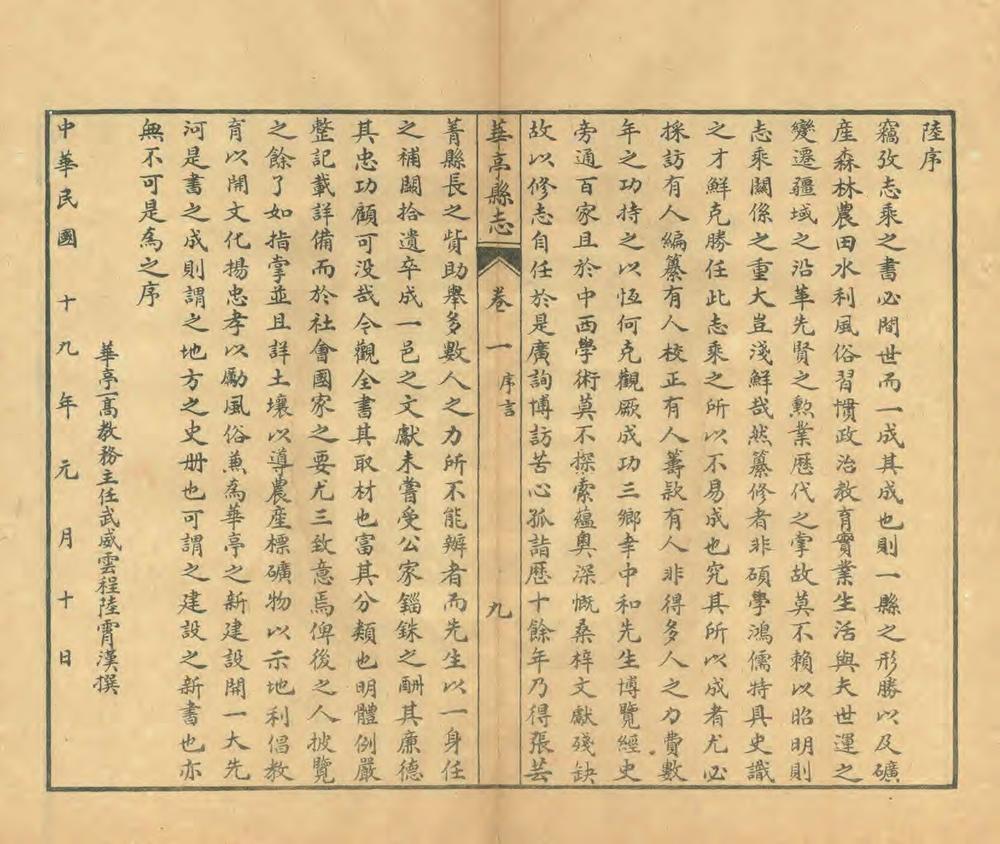 陸序
竊攷志乘之書必間世而一成其成也則一縣之形勝以及礦
產森林農田水利風俗習慣政治教育實業生活與夫世運之
變遷疆域之沿革先賢之勲業歷代之掌故莫不賴以昭明則
志乘關係之重大豈淺鮮哉然纂修者非碩學鴻儒特具史識
之才鮮克勝任此志乘之所以不易成也究其所以成者尤必
採訪有人編纂有人校正有人籌款有人非得多人之力費數
年之功持之以恆何克觀厥成功三鄉幸中和先生博覽經史
旁通百家且於中西學術莫不探索蘊奧深慨桑梓文獻殘缺
故以修志自任於是廣詢博訪苦心孤詣歷十餘年乃得張芸
華亭縣志 卷一 序言 九
菁縣長之貲助舉多數人之力所不能辦者而先生以一身任
之補闕拾遺卒成一邑之文獻未嘗受公家錙銖之酬其廉德
其忠功顧可没哉今觀全書其取材也富其分類也明體例嚴
整記載詳備而於社會國家之要尤三致意焉俾後之人披覽
之餘了如指掌並且詳土壤以導農産標礦物以示地利倡教
育以開文化揚忠孝以勵風俗兼為華亭之新建設開一大先
河是書之成則謂之地方之史册也可謂之建設之新書也亦
無不可是為之序
華亭一高教務主任武威雲程陸霄漢撰
中華民國十九年元月十日